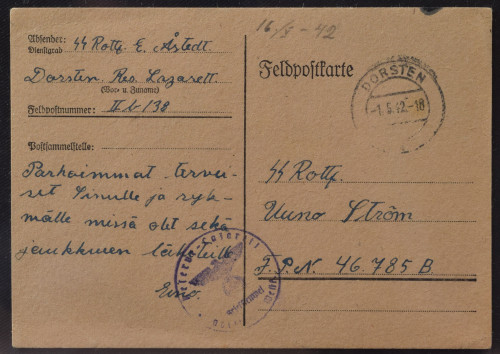 16/V - 42
Absender: SS Rottf. E. Åstedt.
Dienstgrad
Dorsten. Res. Lazarett.
(Vor- u. Zuname)
Feldpostnummer: II b/138
Postsammelstelle:
Parhaimmat tervei-
set Sinulle ja ryh-
mälle missä olet sekä
joukkueen
Feldpostkarte
DORSTEN
-1.5.42.-18
SS Rottf.
Uuno Ström
F.P.N. 46.785 B